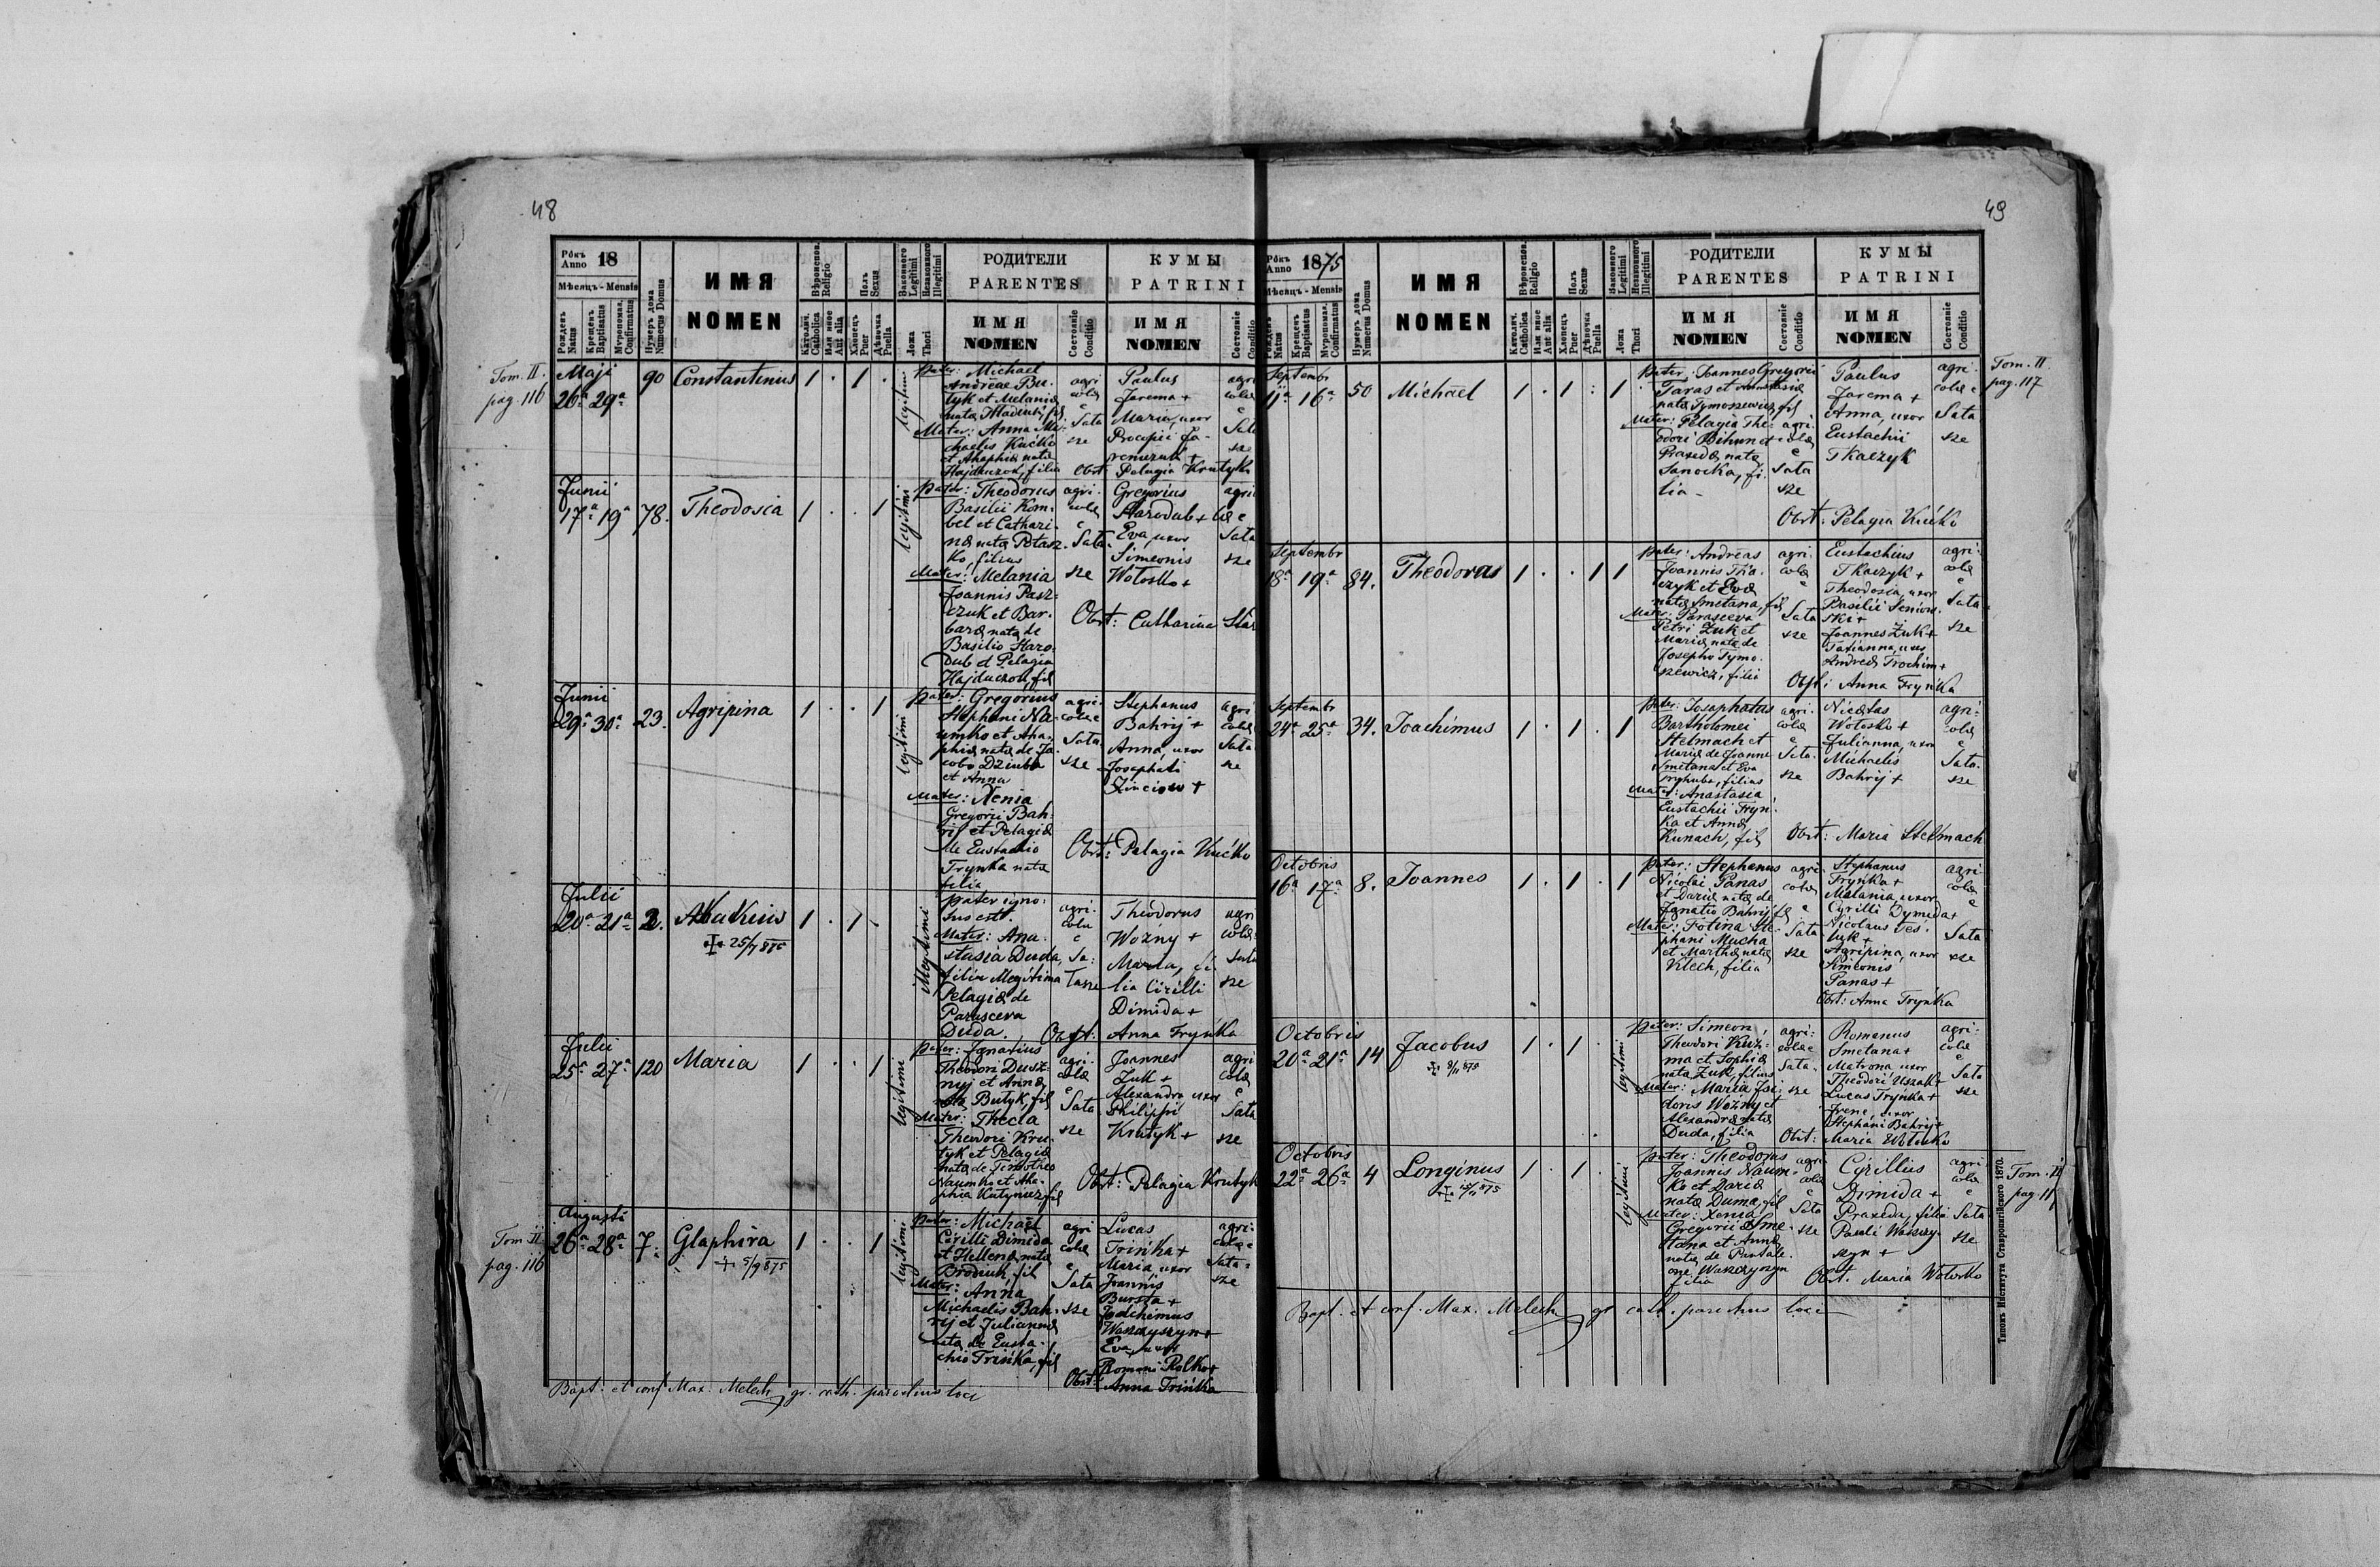 48
Рôкъ Anno 18
Мѣсяцъ - Mensis
Рожденъ Natus
Крещенъ Baptisatus
Муропомаз. Confirmatus
Нумеръ дома Numerus Domus
ИМЯ
NOMEN
Вѣроиспов. Religio
Католич. Catholica
Или иное Aut alia
Полъ Sexus
Хлопецъ Puer
Дѣвочка Puella
Законного Legitimi
Незаконного Illegitimi
Ложа Thori
РОДИТЕЛИ
PARENTES
ИМЯ
NOMEN
Состояніе Conditio
КУМЫ
PATRINI
ИМЯ
NOMEN
Состояніе Conditio
Tom. II.
pag. 116
Maji
26ª 29ª 90 Constantinus 1 . 1 .
legitimi
Pater: Michael
Andreae Bu-
tyk et Melania
Mater: Anna Mi-
chaelis Kućko
et Ahaphia nata
Hajduczok, filia
agri
colae
Sata
sze
Paulus
Jarema +
Maria, uxor
Procopii Ja-
remczuk +
Obst: Pelagia Krutyk
Junii
17ª 19ª 78. Theodosia 1 . . 1
legitimi
Pater: Theodorus
Basilii Kom-
bel et Cathari-
nae nata Ptasz-
ko, filius
Mater: Melania
Joannis Pasz-
czuk et Bar-
bara nata de
Basilio Staro-
dub et Pelagia
Hajduczok, fil
agri-
colae
Sata
sze
Gregorius
Starodub +
Eva, uxor
Simeonis
Wołosko +
Obst: Catharina Star
Junii
29ª 30ª 23. Agripina 1 . . 1
legitimi
Pater: Gregorius
Stephani Na-
umko et Aha-
phia nata de Ja-
cobo Dziuba
et Anna
Mater: Xenia
Gregorii Bah-
rij et Pelagia
de Eustachio
Trynka nata
filia
agri-
colae
Sata
sze
Stephanus
Bahrij +
Anna, uxor
Josaphati
Obst: Pelagia Kućko
Julii
20ª 21ª 2. Akakius 1 . 1 .
25/7 875
illegitimi
Pater igno-
tus est.
Mater: Ana-
stasia Duda,
filia illegitima
Pelagiae de
Parasceva
Duda.
agri-
cola
Sa-
tasze
Theodorus
Wożny +
Maria, fi-
lia Cirilli
Dimida +
Obst: Anna Frynka
Julii
25ª 27ª 120 Maria 1 . . 1
legitimi
Pater: Ignatius
Theodori Dusz-
nyj et Anna
nata Butyk, fil
Mater: Thecla
Theodori Kru-
tyk et Pelagia
nata de Timotheo
Naumko et Aha-
phia Katyniec, fil
agri-
colae
Sata
sze
Joannes
Żuk +
Alexandra uxor
Philippi
Krutyk +
Obst: Pelagia Krutyk
Tom. II
pag. 116
Augusti
26ª 28ª 7. Glaphira 1 . . 1
5/9 875
legitimi
Pater: Michael
Cirilli Dimida
et Hellena nata
Brodiuk, fil
Mater: Anna
Michaelis Bah-
rij et Julianna
nata de Eusta-
chio Trińka, fil
agri
colae
Sata
sze
Lucas
Trińka +
Maria uxor
Joannis
Bursta +
Joachimus
Waszczyszyn +
Eva, uxor
Romani Rolko +
Obst: Anna Trińka
Bapt. et conf. Max. Melech gr. cath. parochus loci
49
Рôкъ Anno 1875
Мѣсяцъ - Mensis
Рожденъ Natus
Крещенъ Baptisatus
Муропомаз. Confirmatus
Нумеръ дома Numerus Domus
ИМЯ
NOMEN
Вѣроиспов. Religio
Католич. Catholica
Или иное Aut alia
Полъ Sexus
Хлопецъ Puer
Дѣвочка Puella
Законного Legitimi
Незаконного Illegitimi
Ложа Thori
РОДИТЕЛИ
PARENTES
ИМЯ
NOMEN
Состояніе Conditio
КУМЫ
PATRINI
ИМЯ
NOMEN
Состояніе Conditio
Tom. II
pag. 117
Septembr
11ª 16ª 50 Michael 1 . 1 : 1
Pater: Joannes Gregorii
Taras et Anastasia
nata Tymoszewicz, fil
Mater: Pelagia The-
odori Bihun et
Praxeda nata
Sanocka, fi-
lia -
agri-
colae
Sata
sze
Paulus
Jarema +
Anna, uxor
Eustachii
Tkaczyk
Obst: Pelagia Kućko
Septembr
18ª 19ª 84. Theodora 1 . . 1 1
Pater: Andreas
Joannis Tka-
czyk et Eva
nata Smetana, fil
Mater: Parasceva
Petri Żuk et
Maria nata de
Josepho Tymo-
szewicz, filii
agri-
colae
Sata
sze
Eustachius
Tkaczyk +
Theodosia, uxor
Basilii
Joannes Żuk +
Tatianna, uxor
Andreae Trochim +
Obst: Anna Frynka
Septembr
24ª 25ª 34. Joachimus 1 . 1 . 1
Pater: Josaphatus
Bartholomei
Stelmach et
Maria de Joanne
Smetana et Eva
Pryhuba, filius
Mater: Anastasia
Eustachii Tryn-
ka et Anna
Kunach, fil
agri-
colae
Sata-
sze
Nicetas
Wołosko +
Julianna, uxor
Michaelis
Bahrij +
Obst: Maria Stelmach
Octobris
16ª 17ª 8. Joannes 1 . 1 . 1
Pater: Stephanus
Nicolai Panas
et Daria nata de
Ignatio Bahrij, fil
Mater: Fotina Ste-
phani Mucha
et Martha nata
Klech, filia
agri-
colae
Sata
sze
Stephanus
Trynka +
Melania, uxor
Cyrilli Dymida +
Nicolaus
Agripina, uxor
Simeonis
Panas +
Obst: Anna Trynka
Octobris
20ª 21ª 14 Jacobus 1 . 1 .
8/11 875
legitimi
Pater: Simeon,
Theodori Kuź-
ma et Sophia
nata Żuk, filius
Mater: Maria Isi-
doris Wożny et
Alexandra nata
Duda, filia
agri-
colae
Sata-
sze
Romanus
Smetana +
Matrona uxor
Theodori Uszak +
Lucas Trynka +
Irene, uxor
Stephani Bahrij +
Obst: Maria Wołosko
Octobris
22ª 26ª 4 Longinus 1 . 1 .
15/11 875
legitimi
Pater: Theodorus
Joannis Naum-
ko et Daria
nata Duma, fil
Mater: Xenia
Gregorii Sme-
tana et Anna
nata de Pantale-
one Waszczyszyn
filia
agri-
colae
Sata
sze
Cyrillus
Dimida +
Praxeda, filia
Pauli Waszczy-
szyn +
Obst. Maria Wołosko
Tom. II
pag. 117
Bapt. et conf. Max. Melech gr. cath. parochus loci
Типомъ Института Ставропигійского 1870.